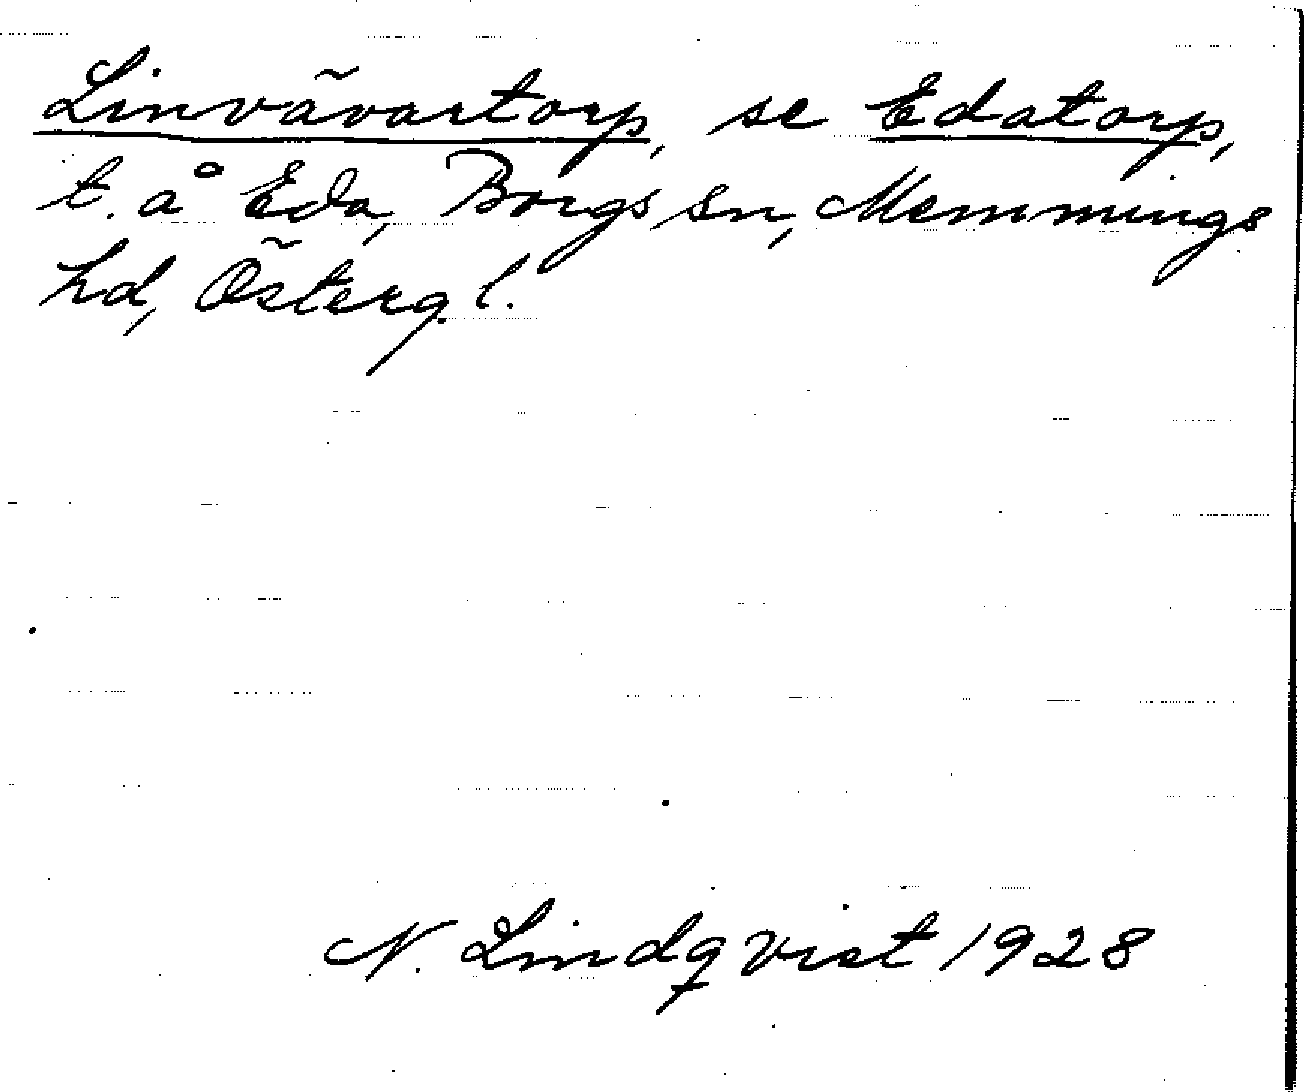 Linvävartorp, se Edatorp,
t. å Eda, Borgs sn, Memmings
hd, Österg. l.
N. Lindqvist 1928